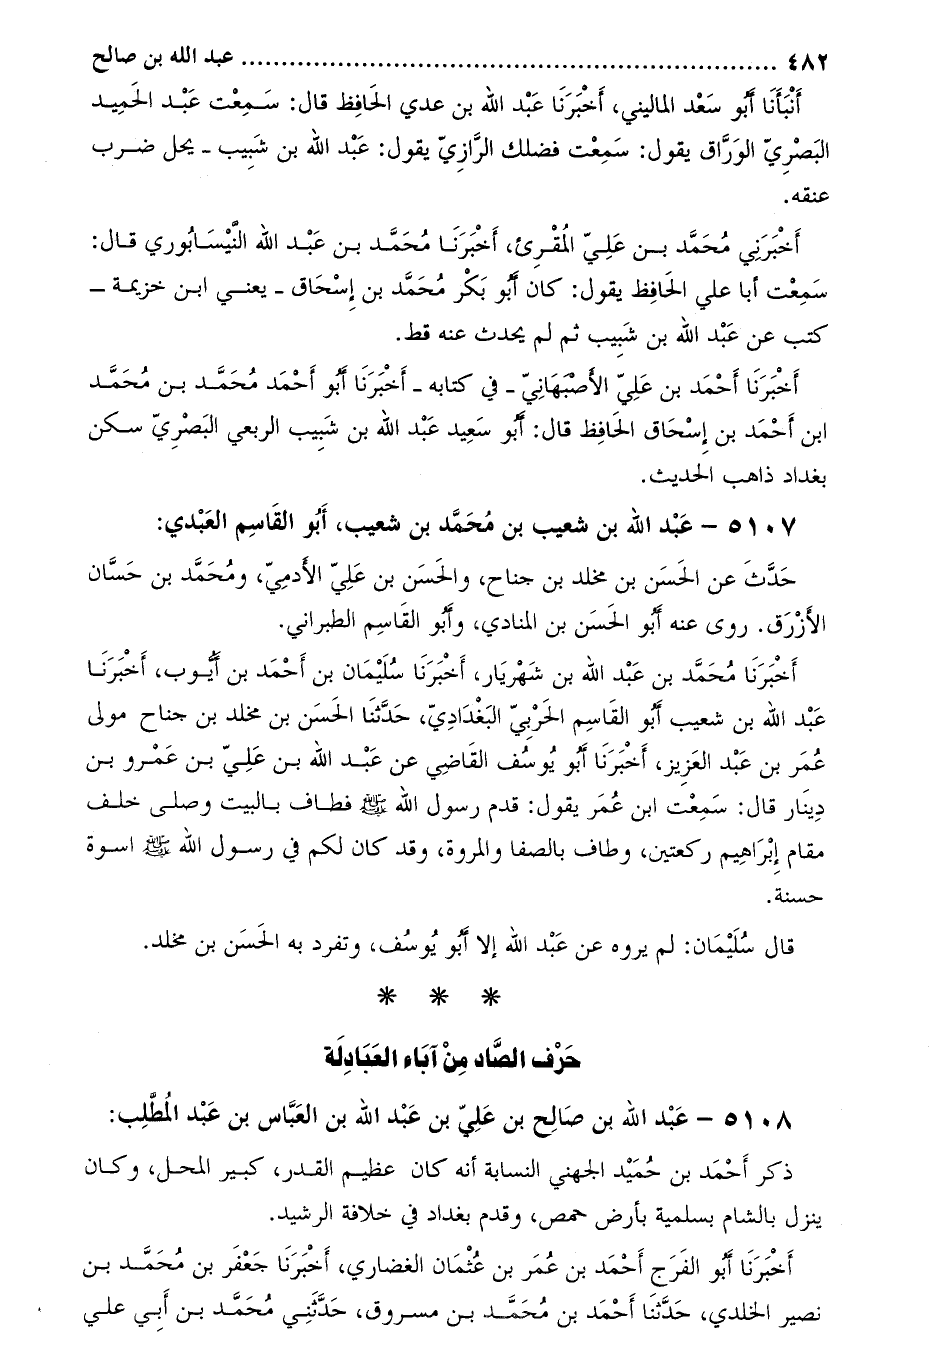 ٤٨٢ ................................................................... عبد الله بن صالح
أَنْبَأَنَا أَبُو سَعْد الماليني، أَخْبَرَنَا عَبْد الله بن عدي الحَافِظ قال: سَمِعْت عَبْد الحَمِيد
البَصْرِيّ الوَرَّاق يقول: سَمِعْت فضلك الرَّازِيّ يقول: عَبْد الله بن شَبِيب ـ يحل ضرب
عنقه.
أَخْبَرَنِي مُحَمَّد بن عَلِيّ المُقْرِئ، أَخْبَرَنَا مُحَمَّد بن عَبْد الله النَّيْسَابُوري قال:
سَمِعْت أبا علي الحَافِظ يقول: كان أَبُو بَكْر مُحَمَّد بن إِسْحَاق ـ يعني ابن خزيمة ـ
كتب عن عَبْد الله بن شَبِيب ثم لم يحدث عنه قط.
أَخْبَرَنَا أَحْمَد بن عَلِيّ الأَصْبَهَانِيّ ـ في كتابه ـ أَخْبَرَنَا أَبُو أَحْمَد مُحَمَّد بن مُحَمَّد
ابن أَحْمَد بن إِسْحَاق الحَافِظ قال: أَبُو سَعِيد عَبْد الله بن شَبِيب الربعي البَصْرِيّ سكن
بغداد ذاهب الحديث.
٥١٠٧ – عَبْد الله بن شعيب بن مُحَمَّد بن شعيب، أَبُو القَاسِم العَبْدي:
حَدَّثَ عن الحَسَن بن مخلد بن جناح، والحَسَن بن عَلِيّ الأدمِيّ، ومُحَمَّد بن حَسَّان
الأَزْرَق. روى عنه أَبُو الحَسَن بن المنادي، وأَبُو القَاسِم الطبراني.
أَخْبَرَنَا مُحَمَّد بن عَبْد الله بن شَهْرِيَار، أَخْبَرَنَا سُلَيْمَان بن أَحْمَد بن أَيُّوب، أَخْبَرَنَا
عَبْد الله بن شعيب أَبُو القَاسِم الحَرْبِيّ البَغْدَادِيّ، حَدَّثَنا الحَسَن بن مخلد بن جناح مولى
عُمَر بن عَبْد العَزِيز، أَخْبَرَنَا أَبُو يُوسُف القَاضِي عن عَبْد الله بن عَلِيّ بن عَمْرو بن
دِينَار قال: سَمِعْت ابن عُمَر يقول: قدم رسول الله ﷺ فطاف بالبيت وصلى خلف
مقام إِبْرَاهِيم ركعتين، وطاف بالصفا والمروة، وقد كان لكم في رسول الله ﷺ اسوة
حسنة.
قال سُلَيْمَان: لم يروه عن عَبْد الله إلا أَبُو يُوسُف، وتفرد به الحَسَن بن مخلد.
* * *
حَرْف الصَّاد مِنْ آبَاء العَبَادِلَة
٥١٠٨ – عَبْد الله بن صَالِح بن عَلِيّ بن عَبْد الله بن العَبَّاس بن عَبْد المُطَّلِب:
ذكر أَحْمَد بن حُمَيْد الجهني النسابة أنه كان عظيم القدر، كبير المحل، وكان
ينزل بالشام بسلمية بأرض حمص، وقدم بغداد في خلافة الرشيد.
أَخْبَرَنَا أَبُو الفَرَج أَحْمَد بن عُمَر بن عُثْمَان الغضاري، أَخْبَرَنَا جَعْفَر بن مُحَمَّد بن
نصير الخلدي، حَدَّثَنا أَحْمَد بن مُحَمَّد بن مسروق، حَدَّثَنِي مُحَمَّد بن أَبِي علي